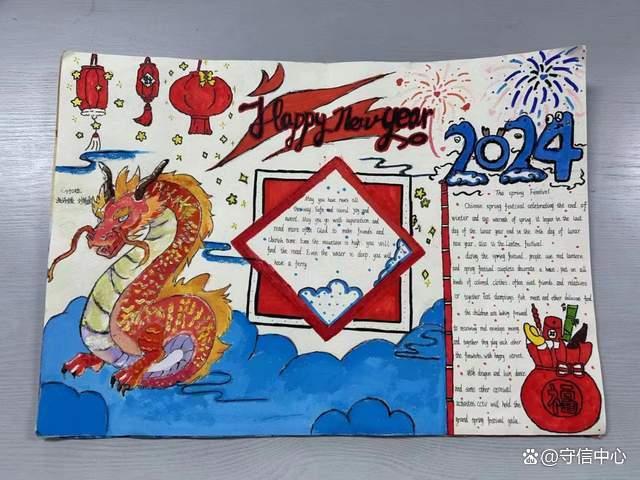 Happy New year
2024
May you have never all
thorway. Safe and sound joy and
sweet. May you go with aspiration and
read more often. Glad to make friends and
cherish time. Even the mountain is high, you will
find the road. Even the water is deep, you will
have a ferry.
The Spring Festival
Chinese spring festival celebrating the end of
winter and the warmth of spring. it began in the last
day of the lunar year end in the 15th day of lunar
new year, also is the Lantern festival.
during the spring festival, people use red lanterns
and spring festival couplets decorate a house, put on all
kinds of colored clothes, often visit friends and relatives
or together eat dumplings, fish, meat and other delicious food.
the children are looking forward
to receiving red envelope money
and together they play each other
the fireworks, with happy
With dragon and lion dance
and some other carnival
activities, CCTV will hold the
grand spring festival gala.
福
@守信中心